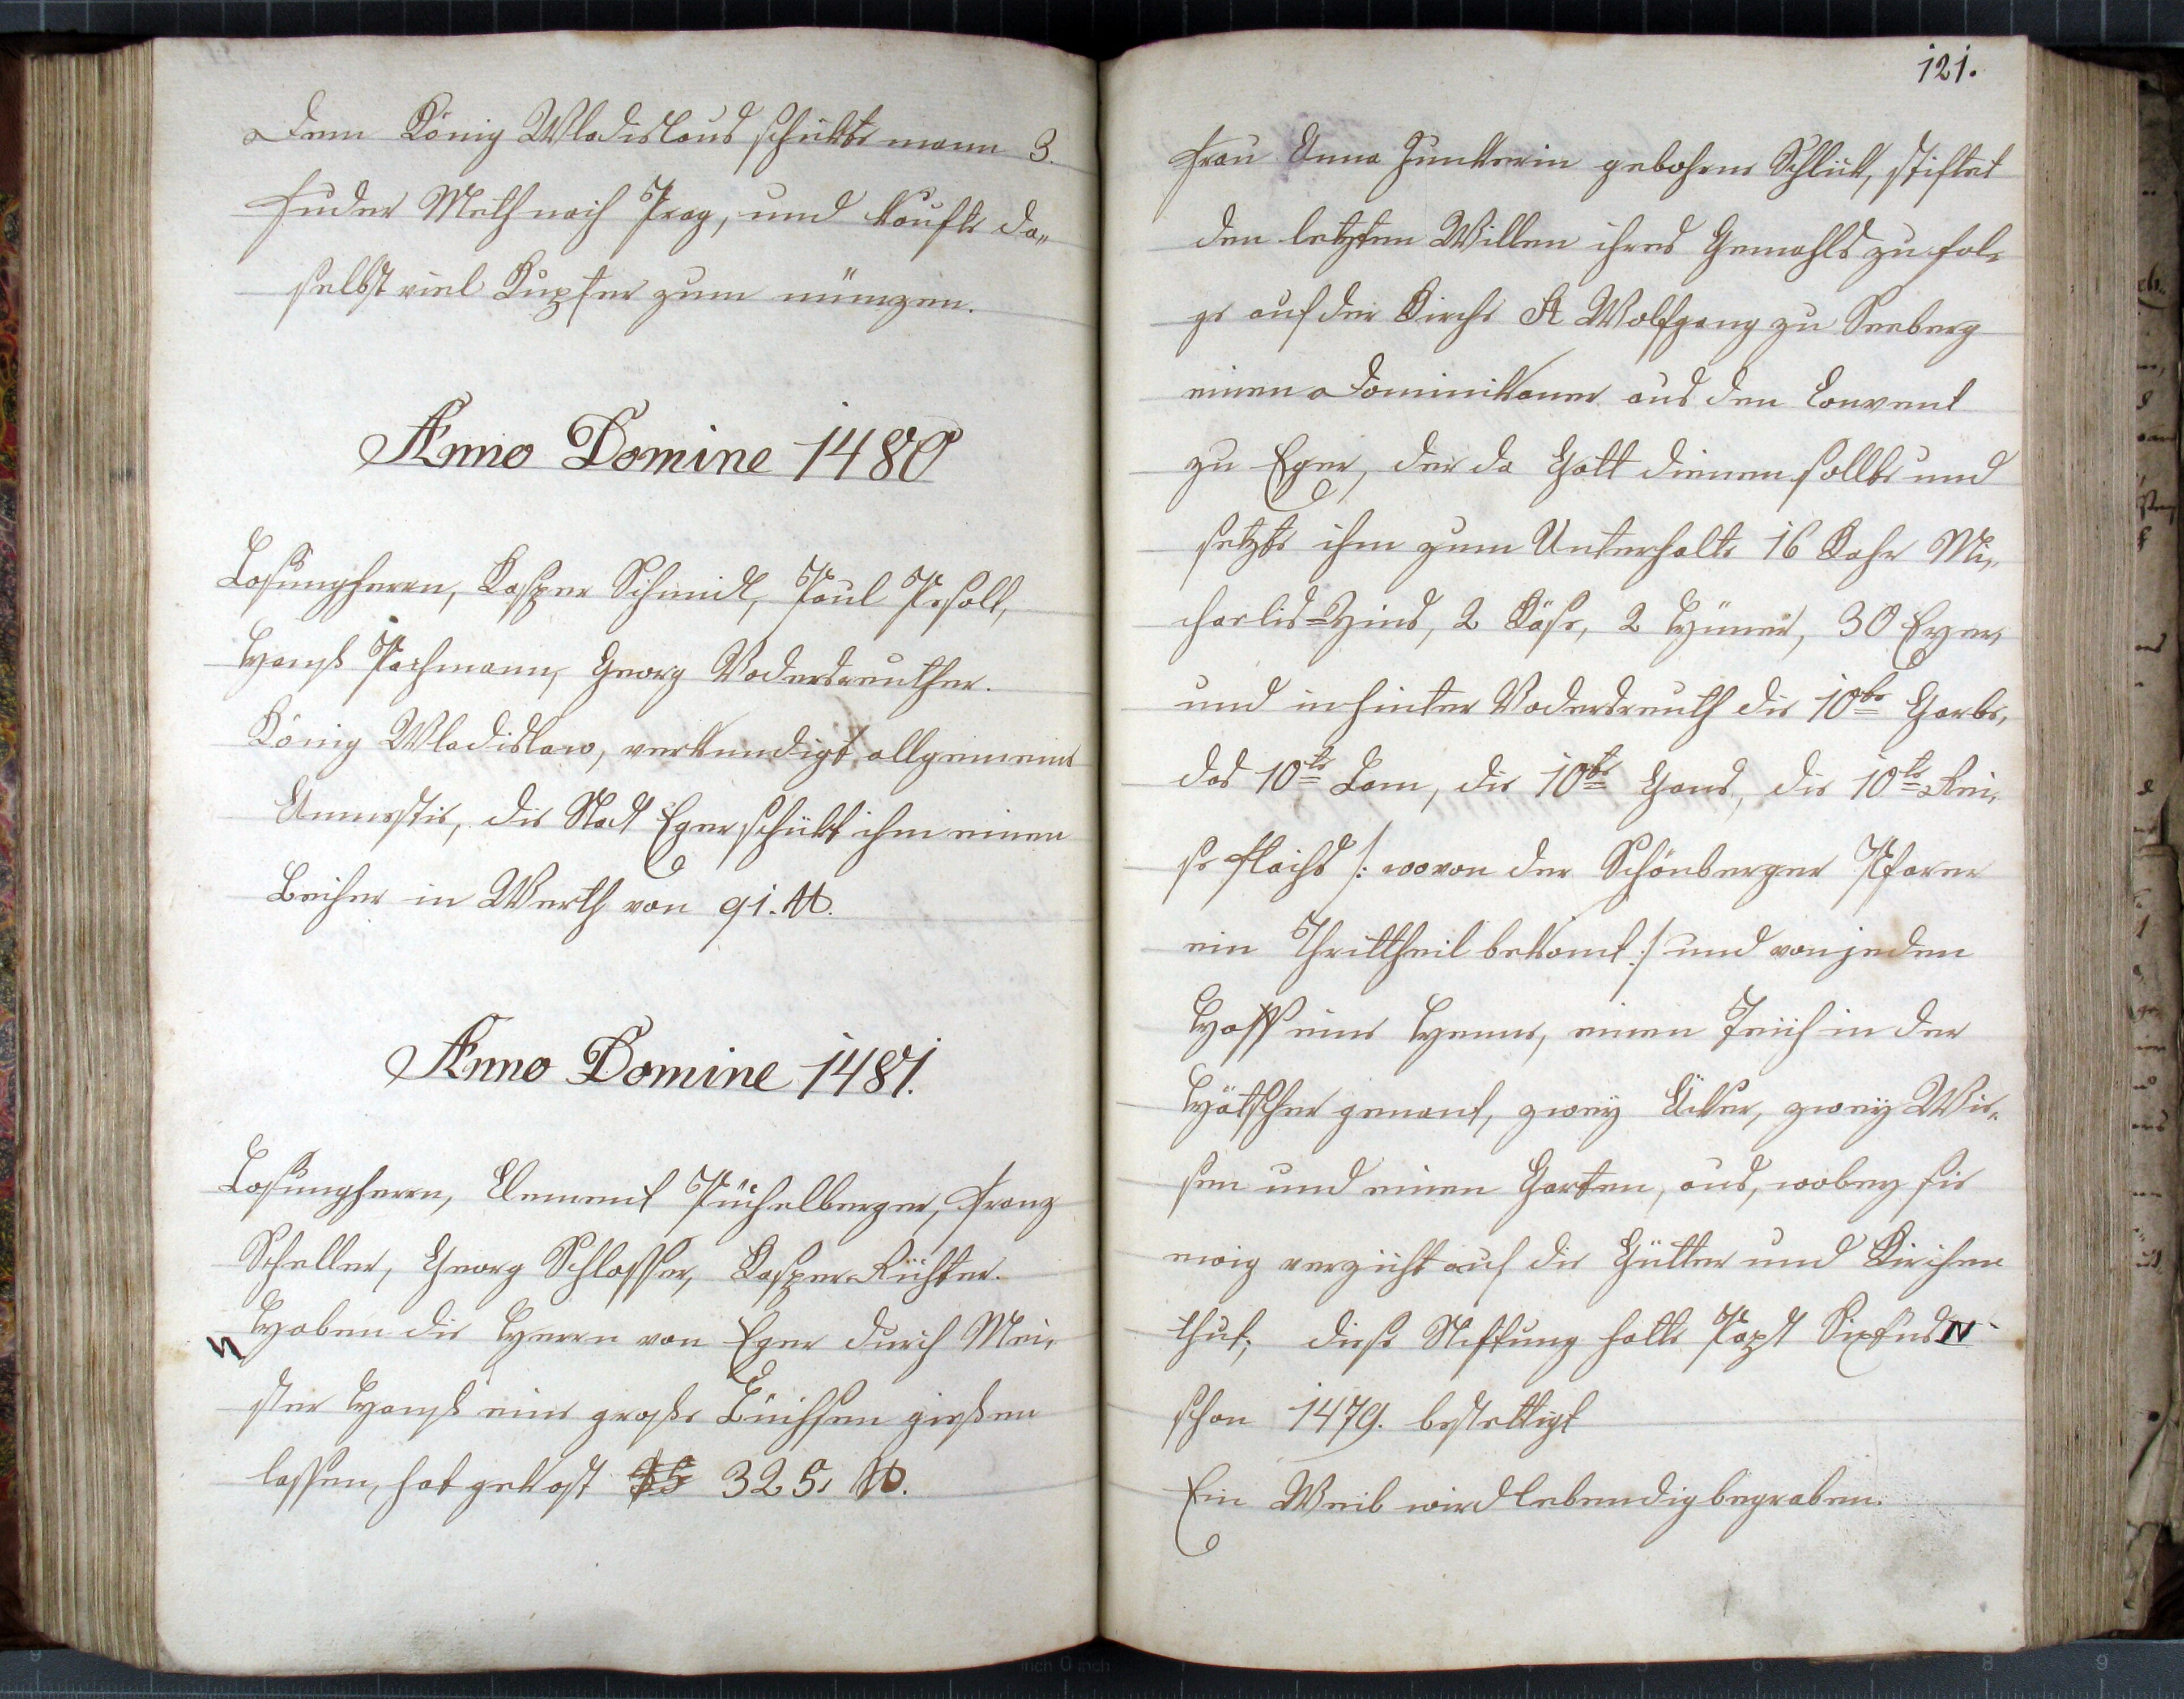 Dem König Wladislaus schükte mann 3.
Fuder Meth nach Prag, und kaufte da„
selbst viel Kupfer zum münzen.
Anno Domine 1480
Losungherrn, Kasper Schmidt, Paul Pesolt,
Hanß Pachmann, Georg Vodersreuther.
König Wladislaw, verkundigt allgemeine
Amnestie, die Stadt Eger schükt ihm einen
Becher in Werth von 91. ℔.
Anno Domine 1481.
Losungherrn, Clement Püchelberger, Franz
Scheller, Georg Schlosser, Kasper Richter.
Haben die Herrn von Eger durch Mei„
ster Hanß eine große Büchsen gießen
lassen, hat gekost 325. ℔.
121.
Frau Anna Junkerin gebohrne Schlick, stiftet
den letzten Willen ihres Gemahls zu fol„
ge auf der Kirche St Wolfgang zu Seeberg
einen Dominikaner aus den Convent
zu Eger, der da Gott dienen sollte und
setzte ihm zum Unterhalte 16 Kahr Mi„
chaelis=Zins, 2 Käse, 2 Hüner, 30 Eyer,
und in hinter Vodersreuth die 10te Garbe,
das 10te Lam, die 10te Gans, die 10te Rei„
ste Flachs /: wovon der Schönberger Pfarer
ein Thrittheil bekomt :/ und von jeden
Hoff eine Henne, einen Teich in der
Hätscher genant, zwey Äcker, zwey Wie„
sen und einen Garten, aus, wobey sie
ewig verzicht auf die Gütter und Kirchen
thut; diese Stiftung hatte Papst Sixtus IV
schon 1479. bestettigt
Ein Weib wird lebendig begraben.